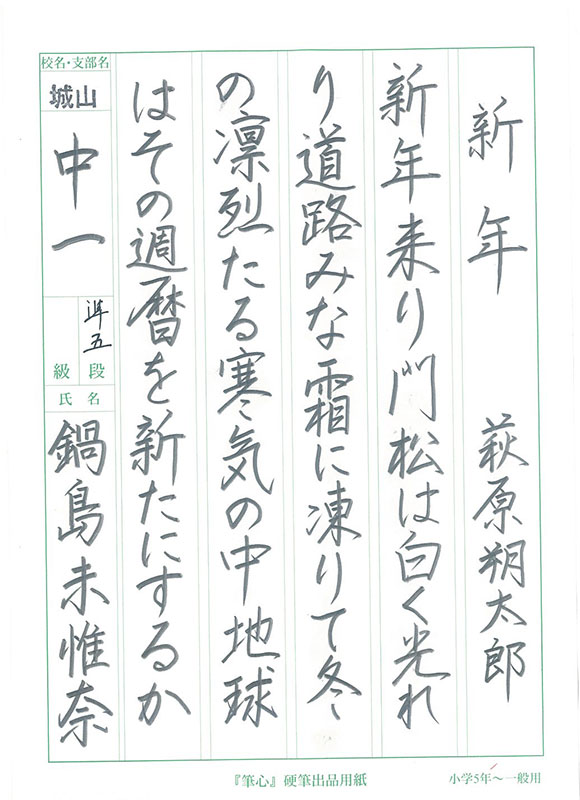 新年 萩原朔太郎
新年来り門松は白く光れ
り道路みな霜に凍りて冬
の凛烈たる寒気の中地球
はその週暦を新たにするか
校名・支部名
城山
中一
準五
級 段
氏名
鍋島未惟奈
『筆心』硬筆出品用紙
小学5年〜一般用